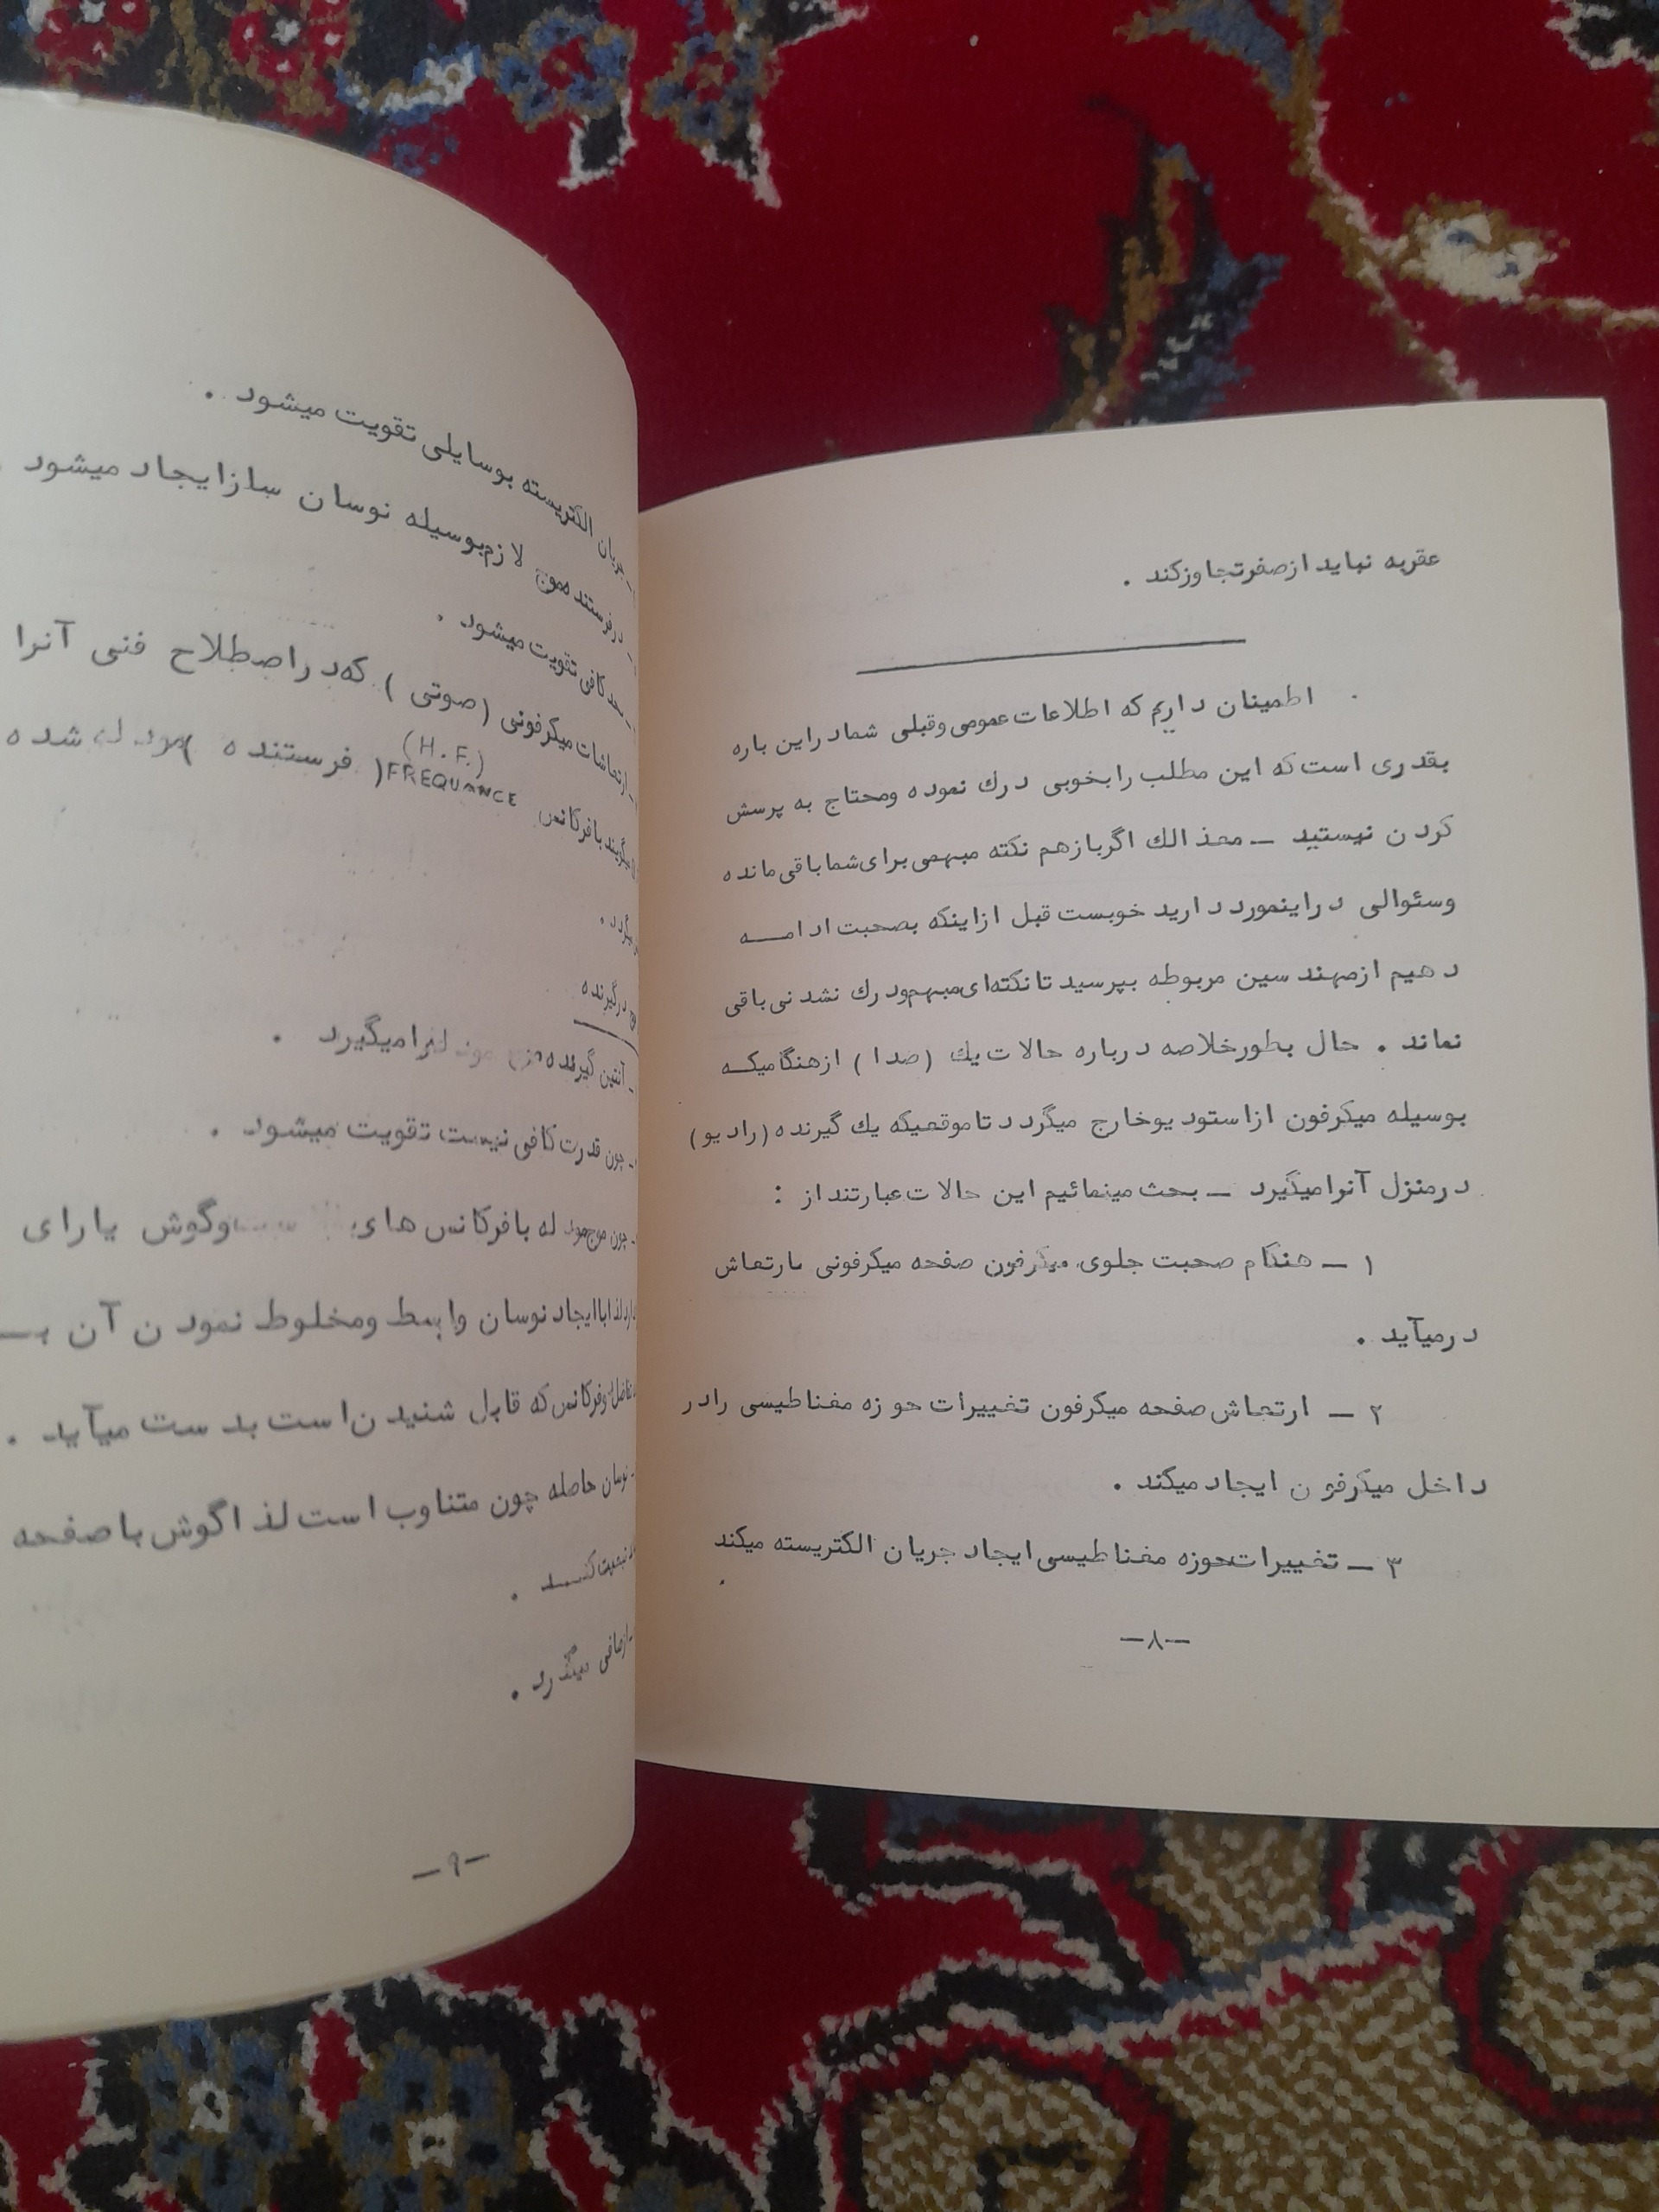 عقربه نباید از صفر تجاوز کند .
اطمینان داریم که اطلاعات عمومی وقبلی شما در این باره
بقدری است که این مطلب را بخوبی درك نموده ومحتاج به پرسش
کردن نیستید ــ معذالك اگر باز هم نکته مبهمی برای شما باقی مانده
وسئوالی در اینمورد دارید خوبست قبل از اینکه بصحبت ادامــه
دهیم از مهندسین مربوطه بپرسید تا نکته‌ای مبهم ودرك نشدنی باقی
نماند . حال بطور خلاصه درباره حالات یك (صدا) از هنگامیکــه
بوسیله میکرفون از استودیو خارج میگردد تا موقعیکه یك گیرنده (رادیو)
در منزل آنرا میگیرد ــ بحث مینمائیم این حالات عبارتند از :
۱ ــ هنگام صحبت جلوی میکرفون صفحه میکرفونی بارتعاش
درمیآید .
۲ ــ ارتعاش صفحه میکرفون تغییرات حوزه مغناطیسی را در
داخل میکرفون ایجاد میکند .
۳ ــ تغییرات حوزه مغناطیسی ایجاد جریان الکتریسته میکند
ــ۸ــ
جریان الکتریسته بوسایلی تقویت میشود .
در فرستنده موج لازم بوسیله نوسان ساز ایجاد میشود .
بحد کافی تقویت میشود .
ارتعاشات میکرفونی (صوتی) که در اصطلاح فنی آنرا
(H.F.)
میگویند با فرکانس FREQUANCE (فرستنده) شده
میگردد .
در گیرنده
آنتن گیرنده را میگیرد .
چون قدرت کافی نیست تقویت میشود .
چون موج له با فرکانس های وگوش یارای
لذا با ایجاد نوسان واسط ومخلوط نمودن آن بــ
وفرکانس که قابل شنیدن است بدست میآید .
نوسان حاصله چون متناوب است لذا گوش با صفحه
کنــد .
از صافی میگذرد .
ــ۹ــ